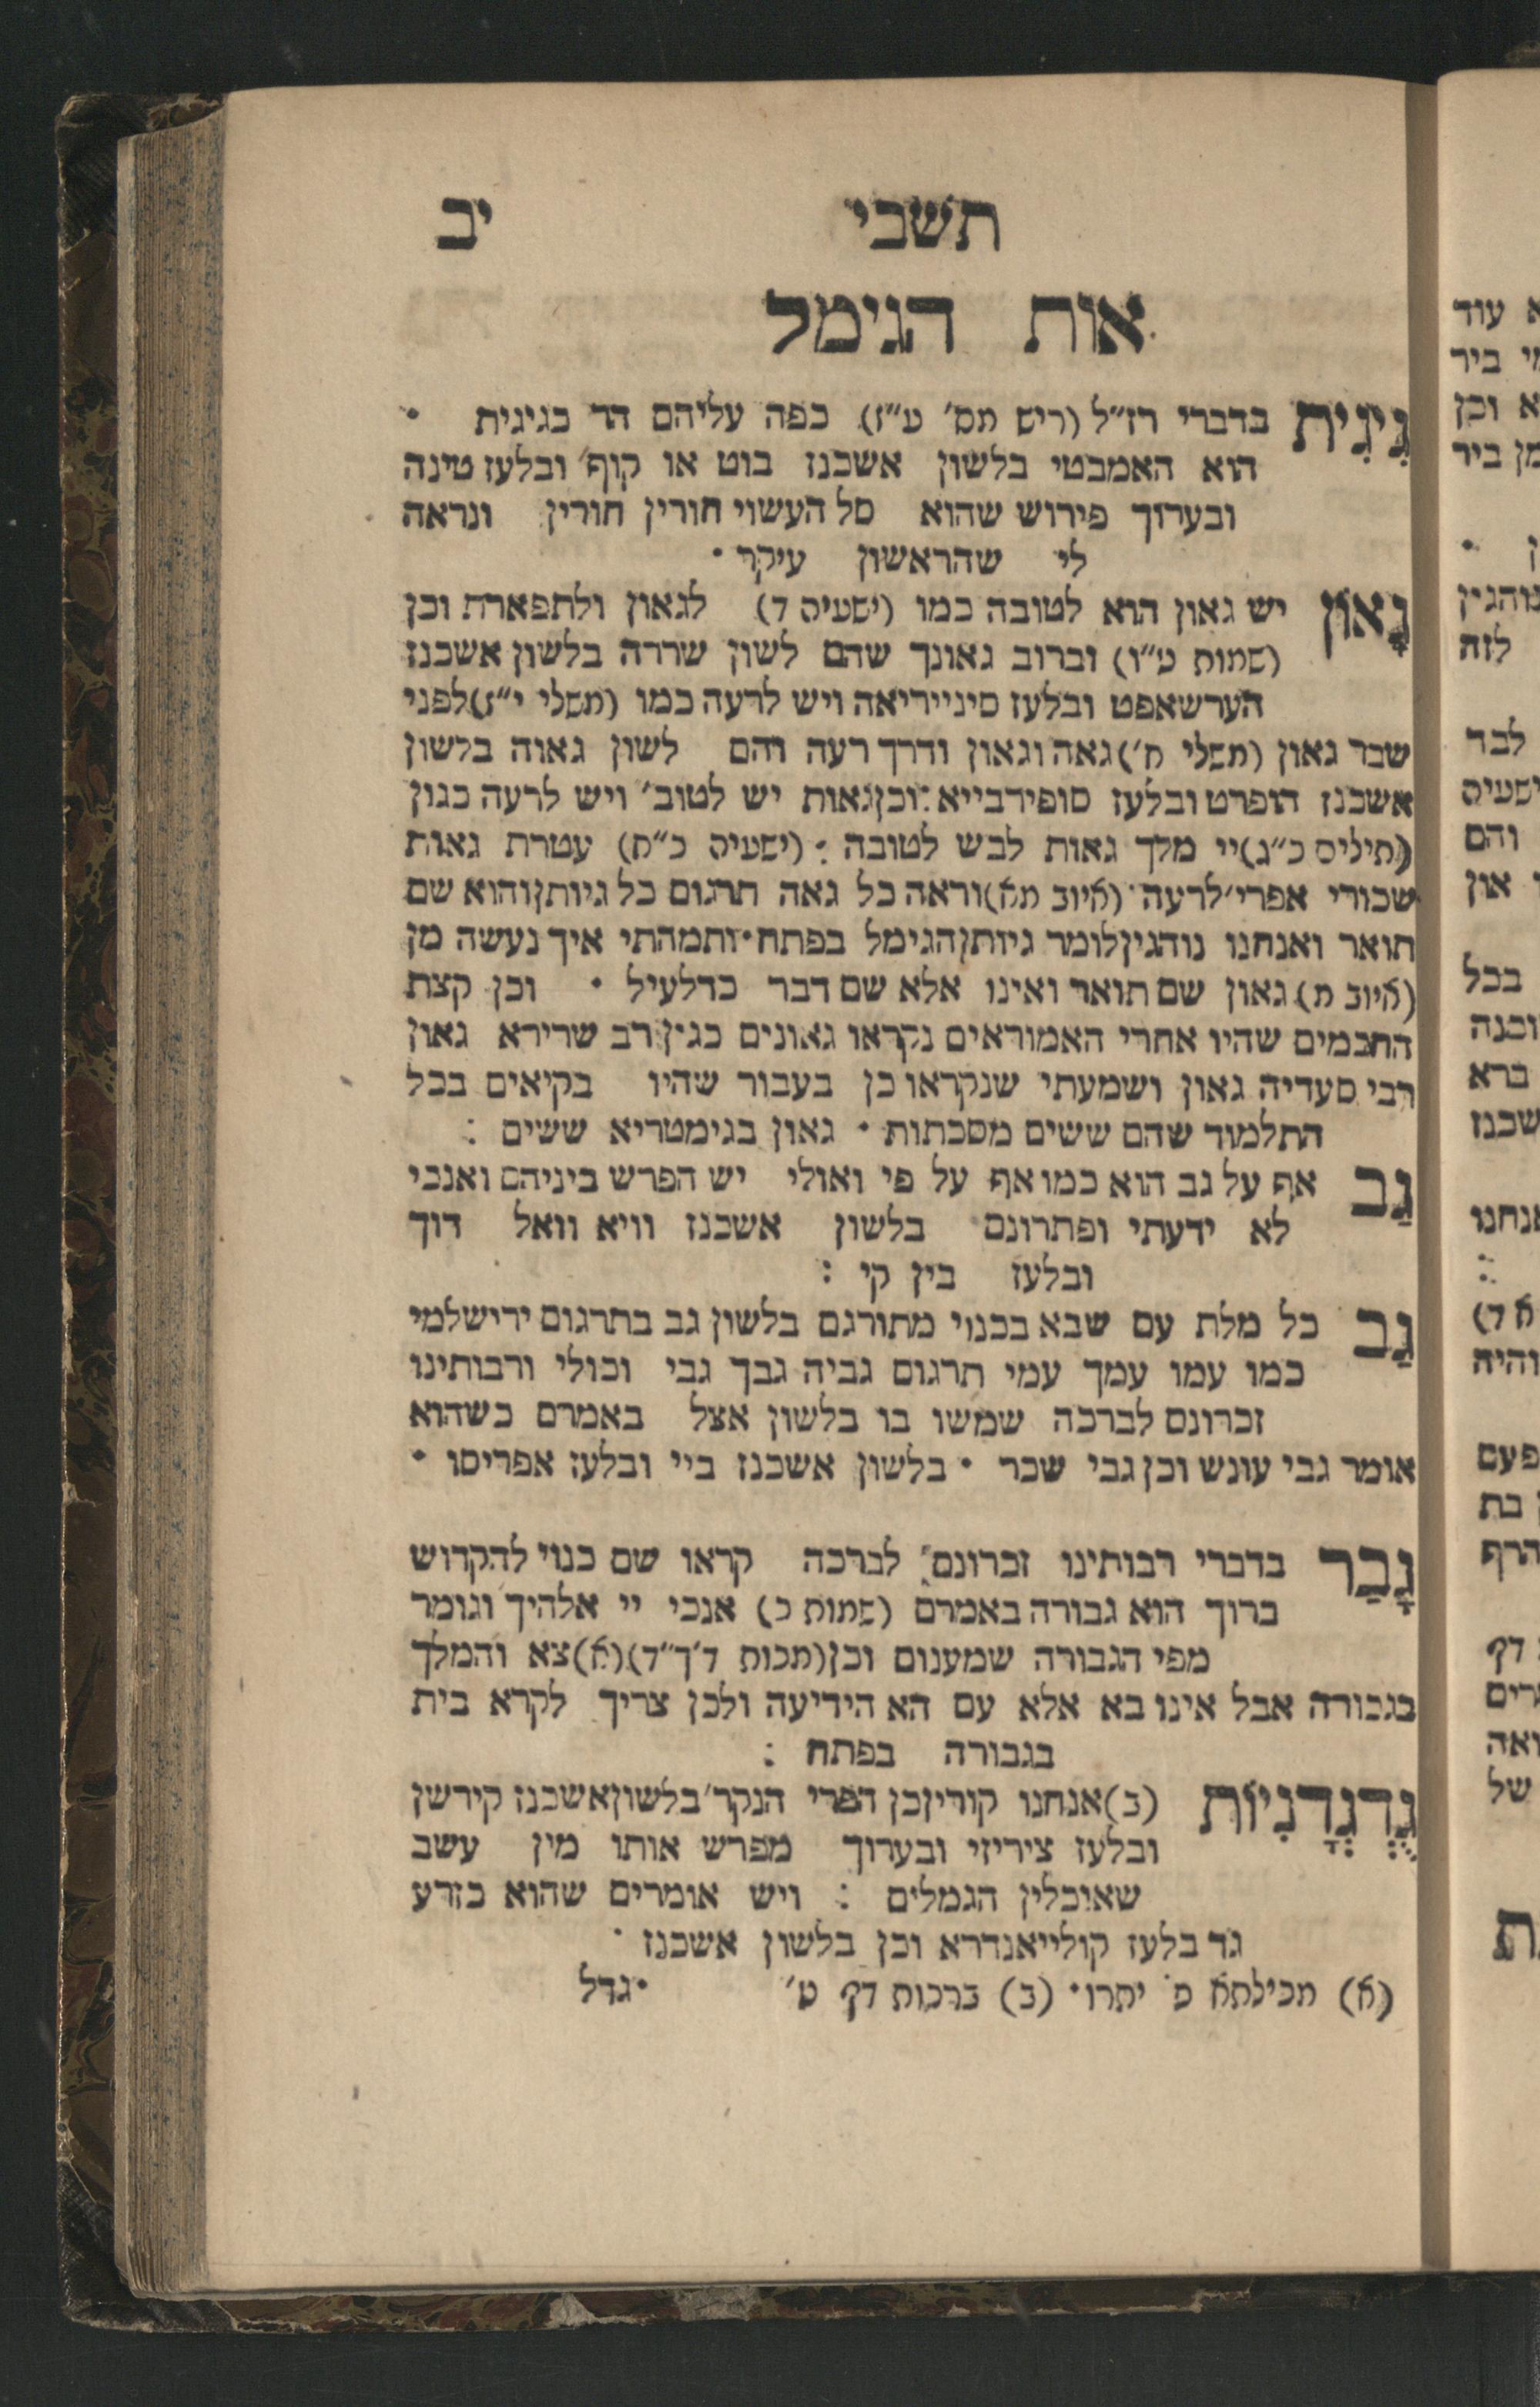 תשבי יב
אות הגימל
גִיגִית בדברי רז״ל (ריש מס׳ ע״ז) כפה עליהם הר כגיגית •
הוא האמבטי בלשון אשכנז בוט או קוף ובלעז טינה
ובערוך פירוש שהוא סל העשוי חורין חורין ונראה
לי שהראשון עיקר •
גָאוֹן יש גאון הוא לטובה כמו (ישעיה ד) לגאון ולתפארת וכן
(שמות ט״ו) וברוב גאונך שהם לשון שררה בלשון אשכנז
הערשאפט ובלעז סיניירואה ויש לרעה כמו (משלי י״ז) לפני
שבר גאון (משלי ח׳) גאה וגאון ודרך רעה והם לשון גאוה בלשון
אשכנז הופרט ובלעז סופירבייא : וכן גאות יש לטוב׳ ויש לרעה כגון
(תיליס כ״ג) יי מלך גאות לבש לטובה : (ישעיה כ״ח) עטרת גאות
שכורי אפרי׳ לרעה • (איוב מא) וראה כל גאה תרגום כל גיותן והוא שם
תואר ואנחנו נוהגין לומר גיותן הגימל בפתח • ותמהתי איך נעשה מן
(איוב מ) גאון שם תואר ואינו אלא שם דבר כדלעיל • וכן קצת
החכמים שהיו אחרי האמוראים נקראו גאונים כגין רב שרירא גאון
רבי סעדיה גאון ושמעתי שנקראו כן בעבור שהיו בקיאים בכל
התלמוד שהם ששים מסכתות • גאון בגימטריא ששים :
גַב אף על גב הוא כמו אף על פי ואולי יש הפרש ביניהם ואנכי
לא ידעתי ופתרונם בלשון אשכנז וויא וואל דוך
ובלעז בין קי :
גַב כל מלת עם שבא בכנוי מתורגם בלשון גב בתרגום ירושלמי
כמו עמו עמך עמי תרגום גביה גבך גבי וכולי ורבותינו
זכרונם לברכה שמשו בו בלשון אצל באמרם כשהוא
אומר גבי עונש וכן גבי שכר • בלשון אשכנז ביי ובלעז אפריסו •
גָבַר בדברי רבותינו זכרונם לברכה קראו שם כנוי להקדוש
ברוך הוא גבורה באמרם (שמות כ) אנכי יי אלהיך וגומר
מפי הגבורה שמענום וכן (מכות ד׳ך״ד) (א) צא והמלך
בגבורה אבל אינו בא אלא עם הא הידיעה ולכן צריך לקרא בית
בגבורה בפתח :
גֻדְגְדָנִיוֹת (ב) אנחנו קורין כן הפרי הנקר׳ בלשון אשכנז קירשן
ובלעז ציריזי ובערוך מפרש אותו מין עשב
שאוכלין הגמלים : ויש אומרים שהוא כזרע
גד בלעז קולייאנדרא וכן בלשון אשכנז •
(א) מכילתא פ׳ יתרו • (ב) ברכות דף ט׳ • גדל